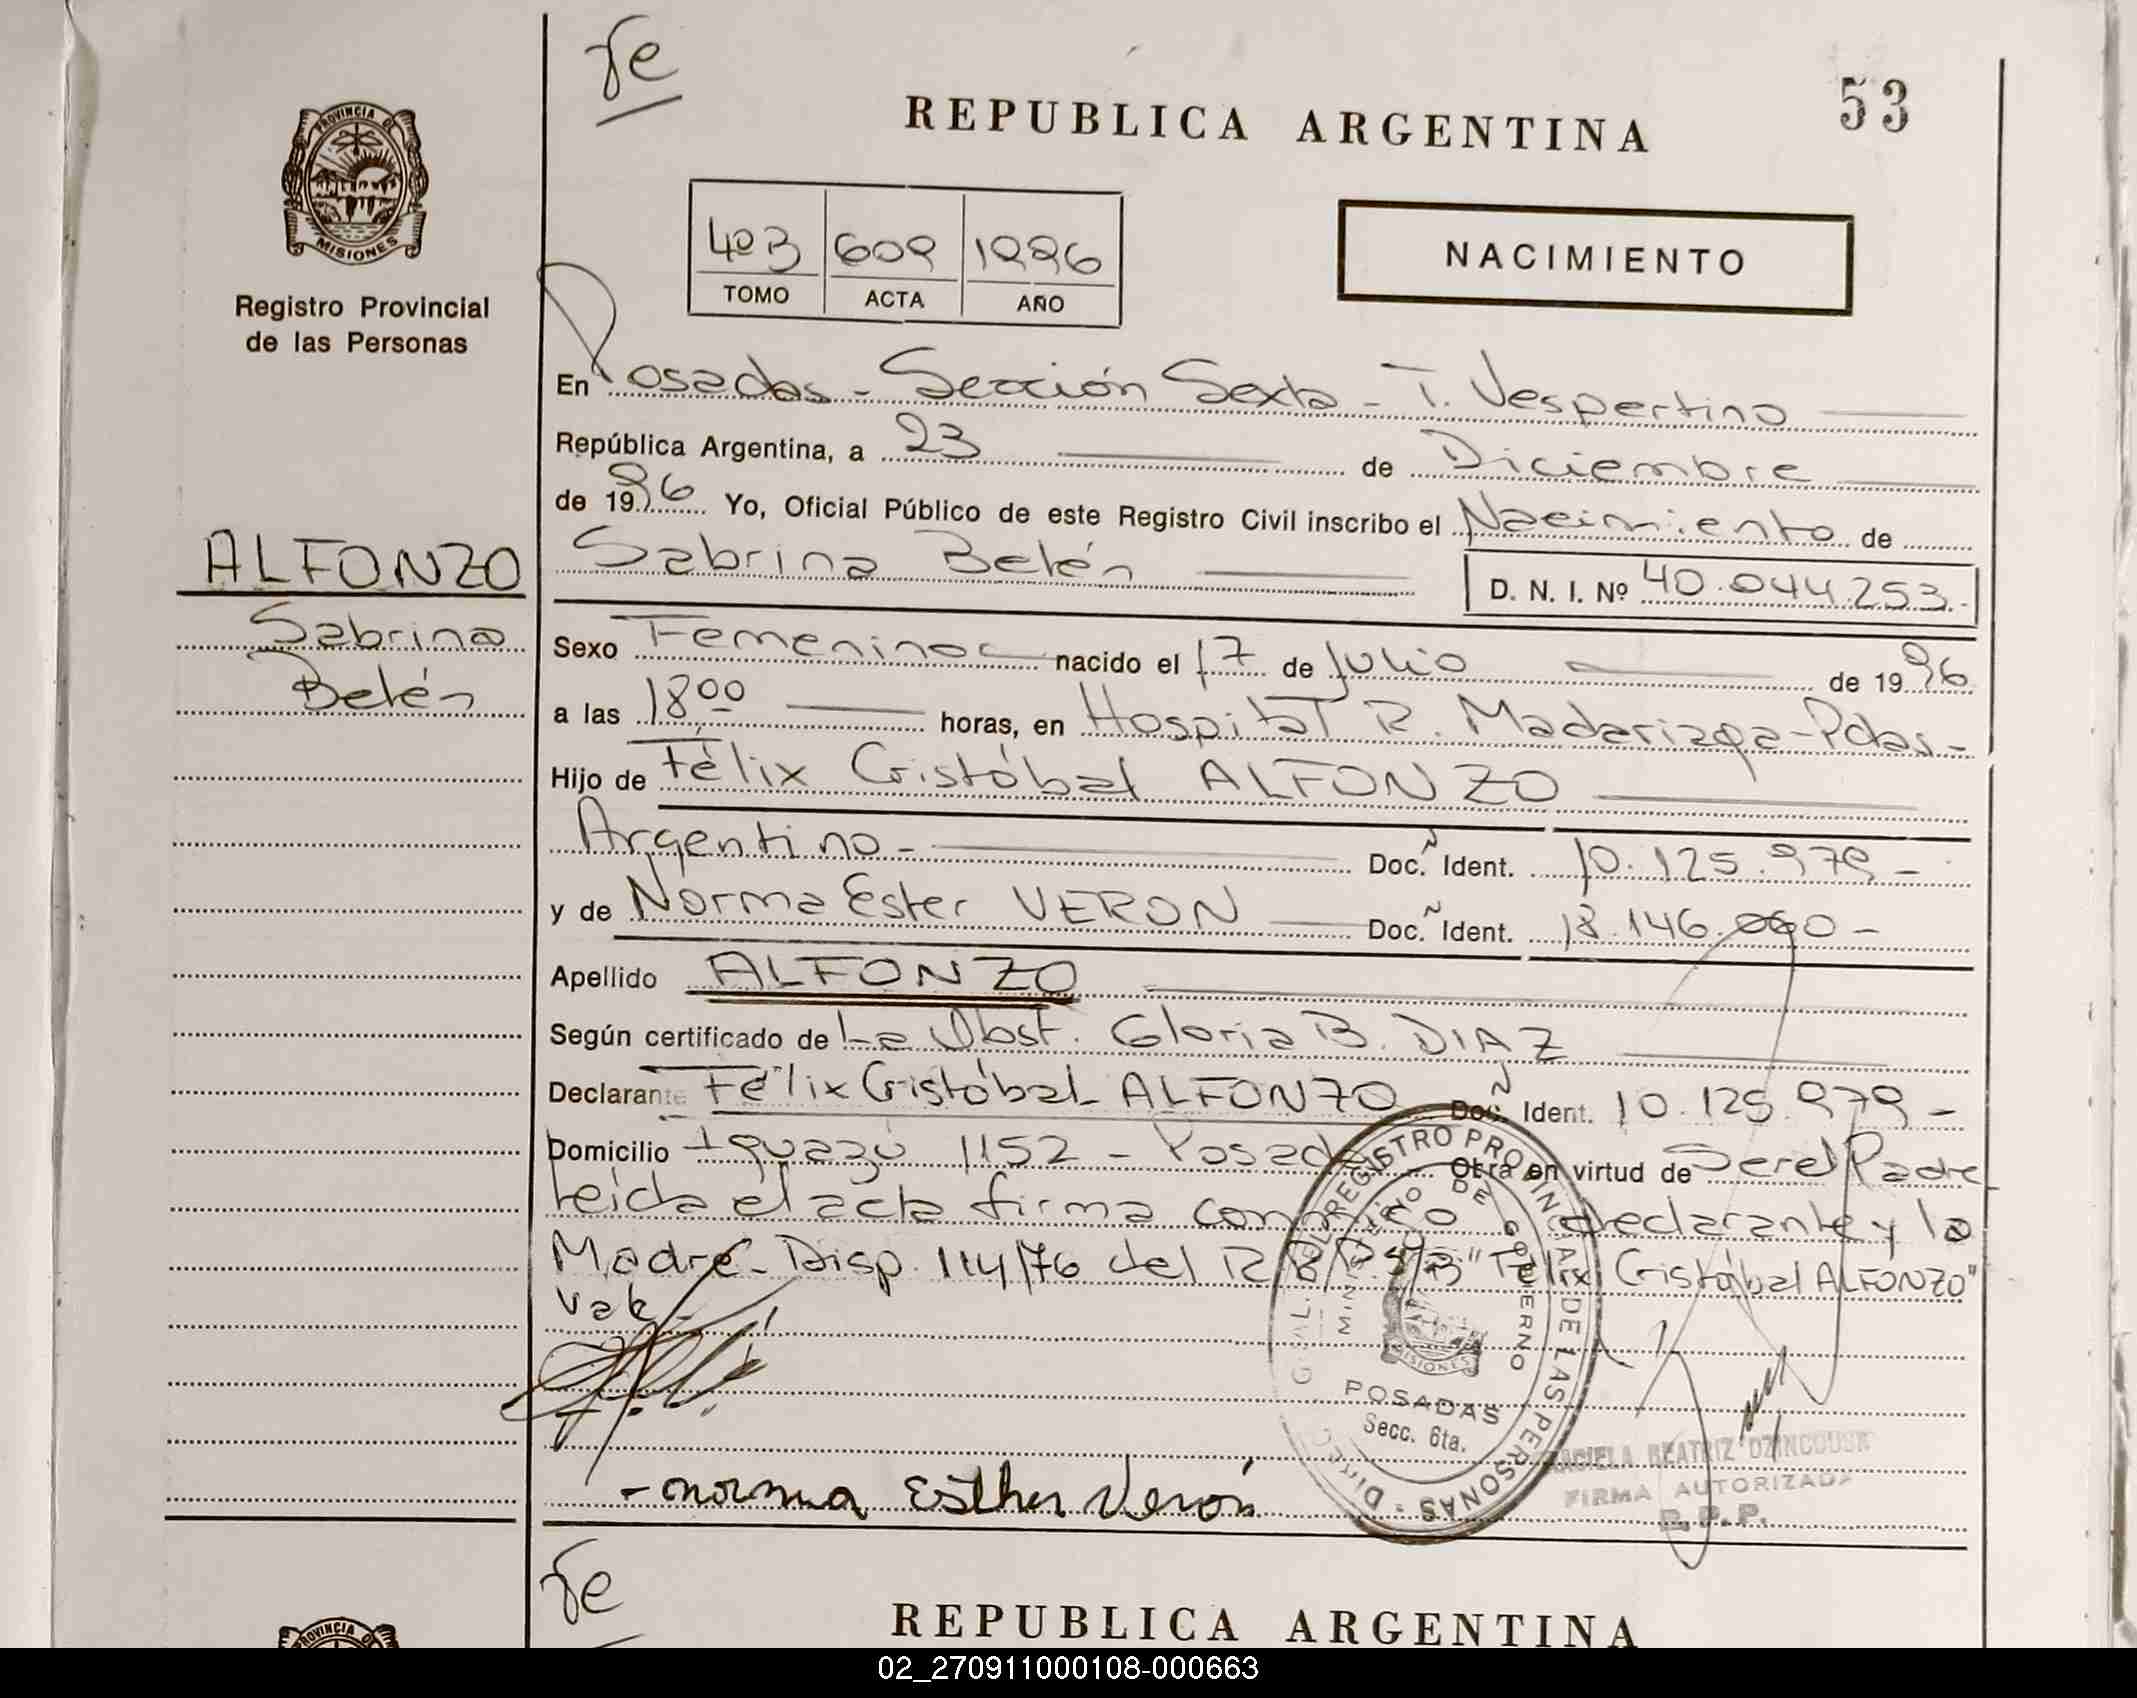 fe
53
REPUBLICA ARGENTINA
PROVINCIA DE
MISIONES
Registro Provincial
de las Personas
4º B 609 1996
TOMO ACTA AÑO
NACIMIENTO
En Posadas - Sección Sexta - T. Vespertino
República Argentina, a 23 de Diciembre
de 1996 Yo, Oficial Público de este Registro Civil inscribo el Nacimiento de
ALFONZO
Sabrina
Belén
Sabrina Belén D. N. I. Nº 40.044.253.-
Sexo Femenino nacido el 17 de Julio de 1996
a las 18⁰⁰ horas, en Hospital R. Madariaga-Pdas-
Hijo de Félix Cristóbal ALFONZO
Argentino - Doc. Ident. 10.125.979 -
y de Norma Ester VERON Doc. Ident. 18.146.060 -
Apellido ALFONZO
Según certificado de La Obst. Gloria B. DIAZ
Declarante Félix Cristóbal ALFONZO Doc. Ident. 10.125.979 -
Domicilio Iguazú 1152 - Posadas Obra en virtud de Ser el Padre
leída el acta firma conmigo el declarante y la
Madre - Disp. 114/76 del R.P.P. S/B "Félix Cristóbal ALFONZO"
Vale -
- norma Esther Verón
REGISTRO PROVINCIAL DE LAS PERSONAS
MINISTERIO DE GOBIERNO
MISIONES
POSADAS
Secc. 6ta.
BEATRIZ
FIRMA AUTORIZADA
R. P. P.
fe
PROVINCIA DE
REPUBLICA ARGENTINA
02_270911000108-000663